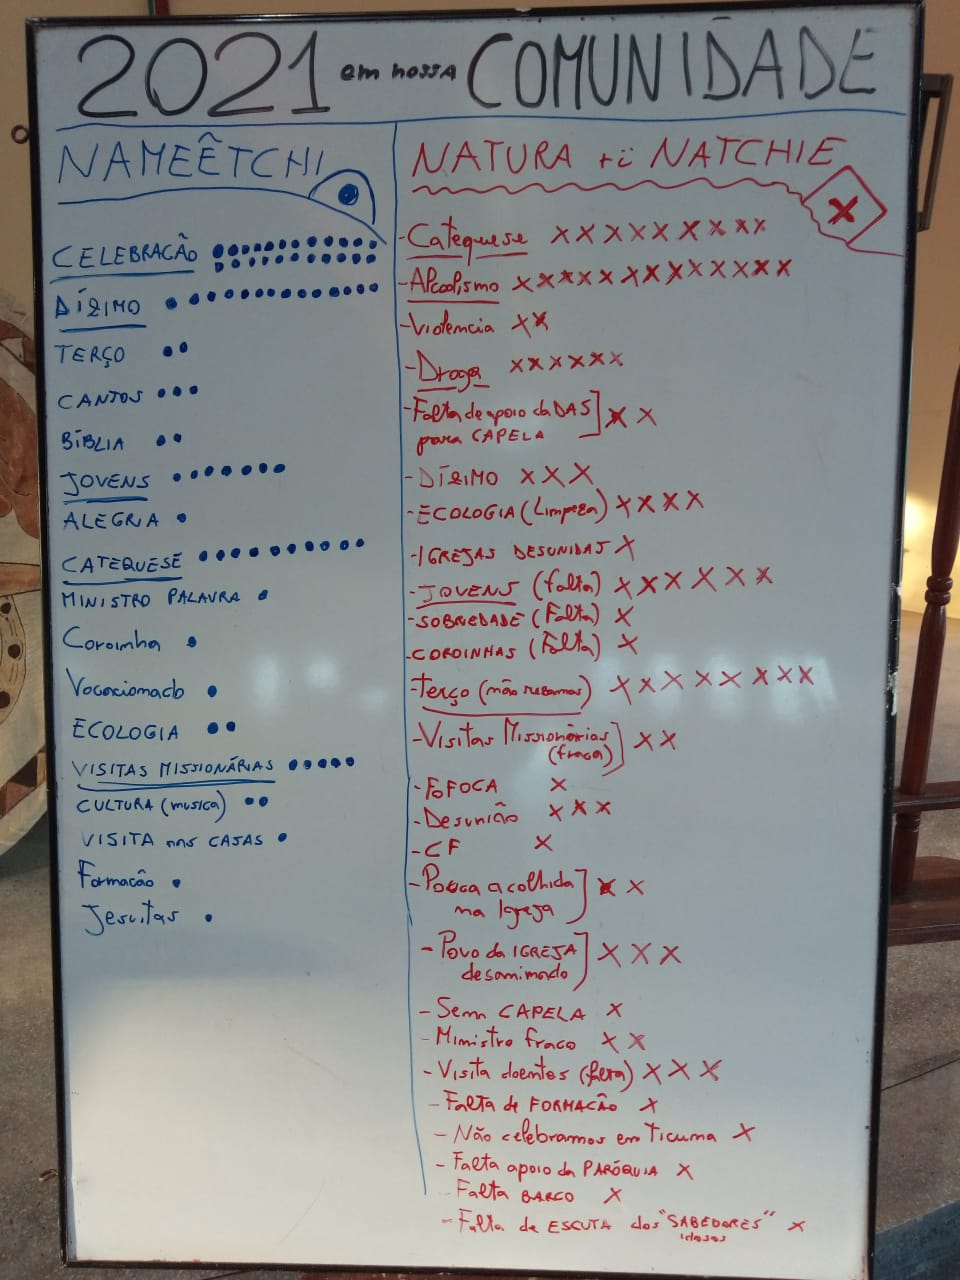 2021 em nossa COMUNIDADE
NAMEÊTCHI
CELEBRAÇÃO
DÍZIMO
TERÇO
CANTOS
BÍBLIA
JOVENS
ALEGRIA
CATEQUESE
MINISTRO PALAVRA
Coroinha
Vocacionado
ECOLOGIA
VISITAS MISSIONÁRIAS
CULTURA (musica)
VISITA nas CASAS
Formacão
Jesuitas
NATURA tü NATCHIE
X
- Catequese X X X X X X X X X
- Alcoolismo X X X X X X X X X X X X X
- Violencia X X
- Droga X X X X X X
- Falta de apoio da DAS X X
para CAPELA
- DÍZIMO X X X
- ECOLOGIA (Limpeza) X X X X
- IGREJAS DESUNIDAS X
- JOVENS (falta) X X X X X X
- SOBRIEDADE (Falta) X
- COROINHAS (Falta) X
- Terço (não rezamos) X X X X X X X X
- Visitas Missionárias X X
(fraca)
- FOFOCA X
- Desunião X X X
- CF X
- Pouca acolhida X X
na Igreja
- Povo da IGREJA X X X
desanimado
- Sem CAPELA X
- Ministro fraco X X
- Visita doentes (falta) X X X
- Falta de FORMACÃO X
- Não celebramos em Ticuna X
- Falta apoio da PARÓQUIA X
- Falta BARCO X
- Falta de ESCUTA dos "SABEDORES" X
idosos